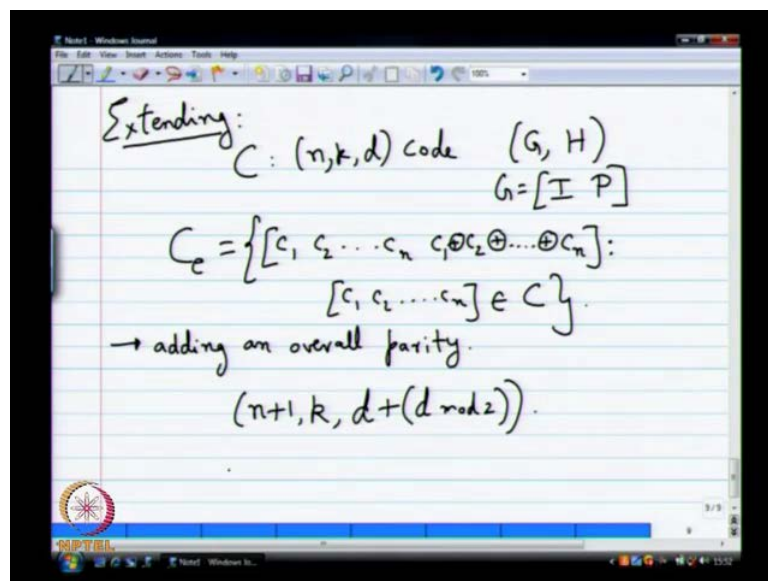 Note1 - Windows Journal
File Edit View Insert Actions Tools Help
100%
Extending:
C : (n,k,d) code (G, H)
G=[I P]
C_e = {[c_1 c_2 ... c_n c_1⊕c_2⊕....⊕c_n]:
[c_1 c_2 .... c_n] ∈ C}.
→ adding an overall parity.
(n+1, k, d+(d mod 2)).
9/9
9
NPTEL
Note1 - Windows Jo...
15:52